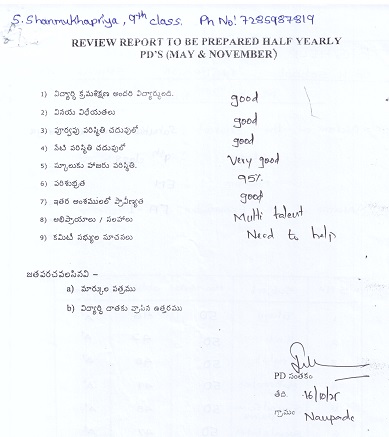 S. Shanmukhapriya, 9th class. Ph No: 7285987819
REVIEW REPORT TO BE PREPARED HALF YEARLY
PD'S (MAY & NOVEMBER)
1) విద్యార్థి క్రమశిక్షణ అందరి విద్యార్థులది. good
2) వినయ విధేయతలు good
3) పూర్వపు పరిస్థితి చదువులో good
4) నేటి పరిస్థితి చదువులో Very good
5) స్కూలుకు హాజరు పరిస్థితి. 95%
6) పరిశుభ్రత good
7) ఇతర అంశములలో ప్రావీణ్యత Multi talent
8) అభిప్రాయాలు / సలహాలు Need to help
9) కమిటీ సభ్యుల సూచనలు
జతపరచవలసినవి –
a) మార్కుల పత్రము
b) విద్యార్థి దాతకు వ్రాసిన ఉత్తరము
PD సంతకం
తేది 16/10/25
గ్రామం Naupade